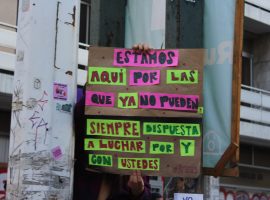 ESTAMOS
AQUÍ POR LAS
QUE YA NO PUEDEN
SIEMPRE DISPUESTA
A LUCHAR POR Y
CON USTEDES